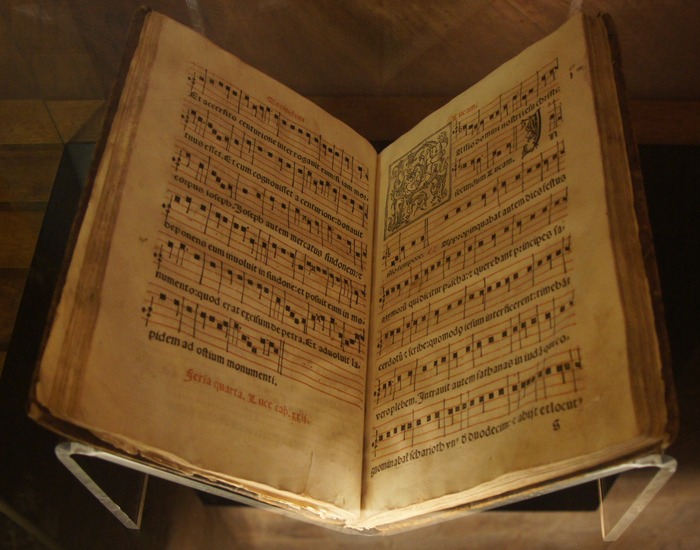 Et accersito centurione interrogavit eum si iam mor-
tuus esset. Et cum cognovisset a centurione: donavit
corpus ioseph. Joseph autem mercatus sindonem: et
deponens eum involuit in sindone: et posuit eum in mo-
numento: quod erat excisum de petra. Et advoluit la-
pidem ad ostium monumenti.
Feria quarta. Luce cap. xxij.
Lucam.
Passio domini nostri iesu christi
secundum Lucam.
In illo tempore. Appropinquabat autem dies festus
azimorum qui dicitur pascha: et querebant principes sa-
cerdotū et scribe: quomodo iesum interficerent: timebāt
vero plebem. Intravit autem sathanas in iudā qui co-
gnominabāt scharioth unū de duodecim: et abijt et locutꝰ